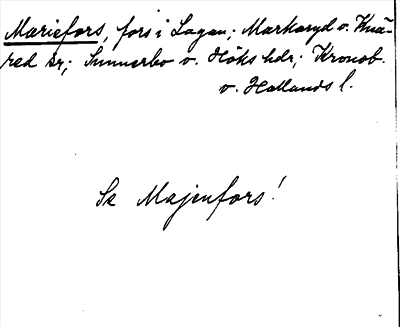 Mariefors, fors i Lagan; Markaryd o. Knä-
red sr; Sunnerbo o. Höks hdr; Kronob.
o. Hallands l.
Se Majenfors!